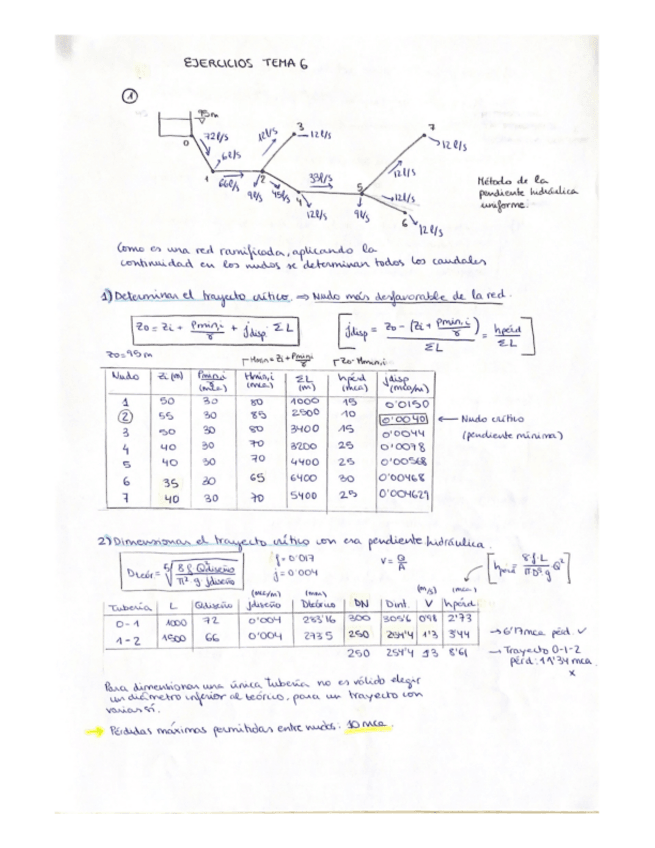 EJERCICIOS TEMA 6
①
95m
0
72 l/s
1
6 l/s
66 l/s
2
12 l/s
3
12 l/s
9 l/s
45 l/s
4
12 l/s
33 l/s
5
9 l/s
12 l/s
7
12 l/s
12 l/s
6
12 l/s
Método de la
pendiente hidráulica
uniforme.
Como es una red ramificada, aplicando la
continuidad en los nudos se determinan todos los caudales
1) Determinar el trayecto crítico ⇒ Nudo más desfavorable de la red.
Zo = Zi + Pmin,i/γ + jdisp · ΣL
[jdisp = Zo - (Zi + Pmin,i/γ) / ΣL = hpérd/ΣL]
Zo = 95 m
Hmin = Zi + Pmin,i/γ
Zo - Hmin,i
Nudo Zi (m) Pmin,i/γ (mca) Hmin,i (mca) ΣL (m) hpérd (mca) jdisp (mca/m)
1 50 30 80 1000 15 0'0150
② 55 30 85 2500 10 0'0040 ← Nudo crítico
3 50 30 80 3400 15 0'0044 (pendiente mínima)
4 40 30 70 3200 25 0'0078
5 40 30 70 4400 25 0'00568
6 35 30 65 6400 30 0'00468
7 40 30 70 5400 25 0'004629
2) Dimensionar el trayecto crítico con esa pendiente hidráulica.
Dteór = ⁵√(8 f Q²diseño / π² g jdiseño)
f = 0'017
j = 0'004
V = Q/A
[hpérd = 8 f · L / π² D⁵ g Q²]
(mca/m) (mm) (m/s) (mca)
Tubería L Qdiseño jdiseño Dteórico DN Dint. V hpérd.
0-1 1000 72 0'004 283'16 300 305'6 0'98 2'73
1-2 1500 66 0'004 273'5 250 254'4 1'3 3'44 → 6'17 mca pérd. ✓
250 254'4 1'3 8'61 → Trayecto 0-1-2
pérd: 11'34 mca.
x
Para dimensionar una única tubería no es válido elegir
un diámetro inferior al teórico, para un trayecto con
varias sí.
→ Pérdidas máximas permitidas entre nudos: 10 mca.